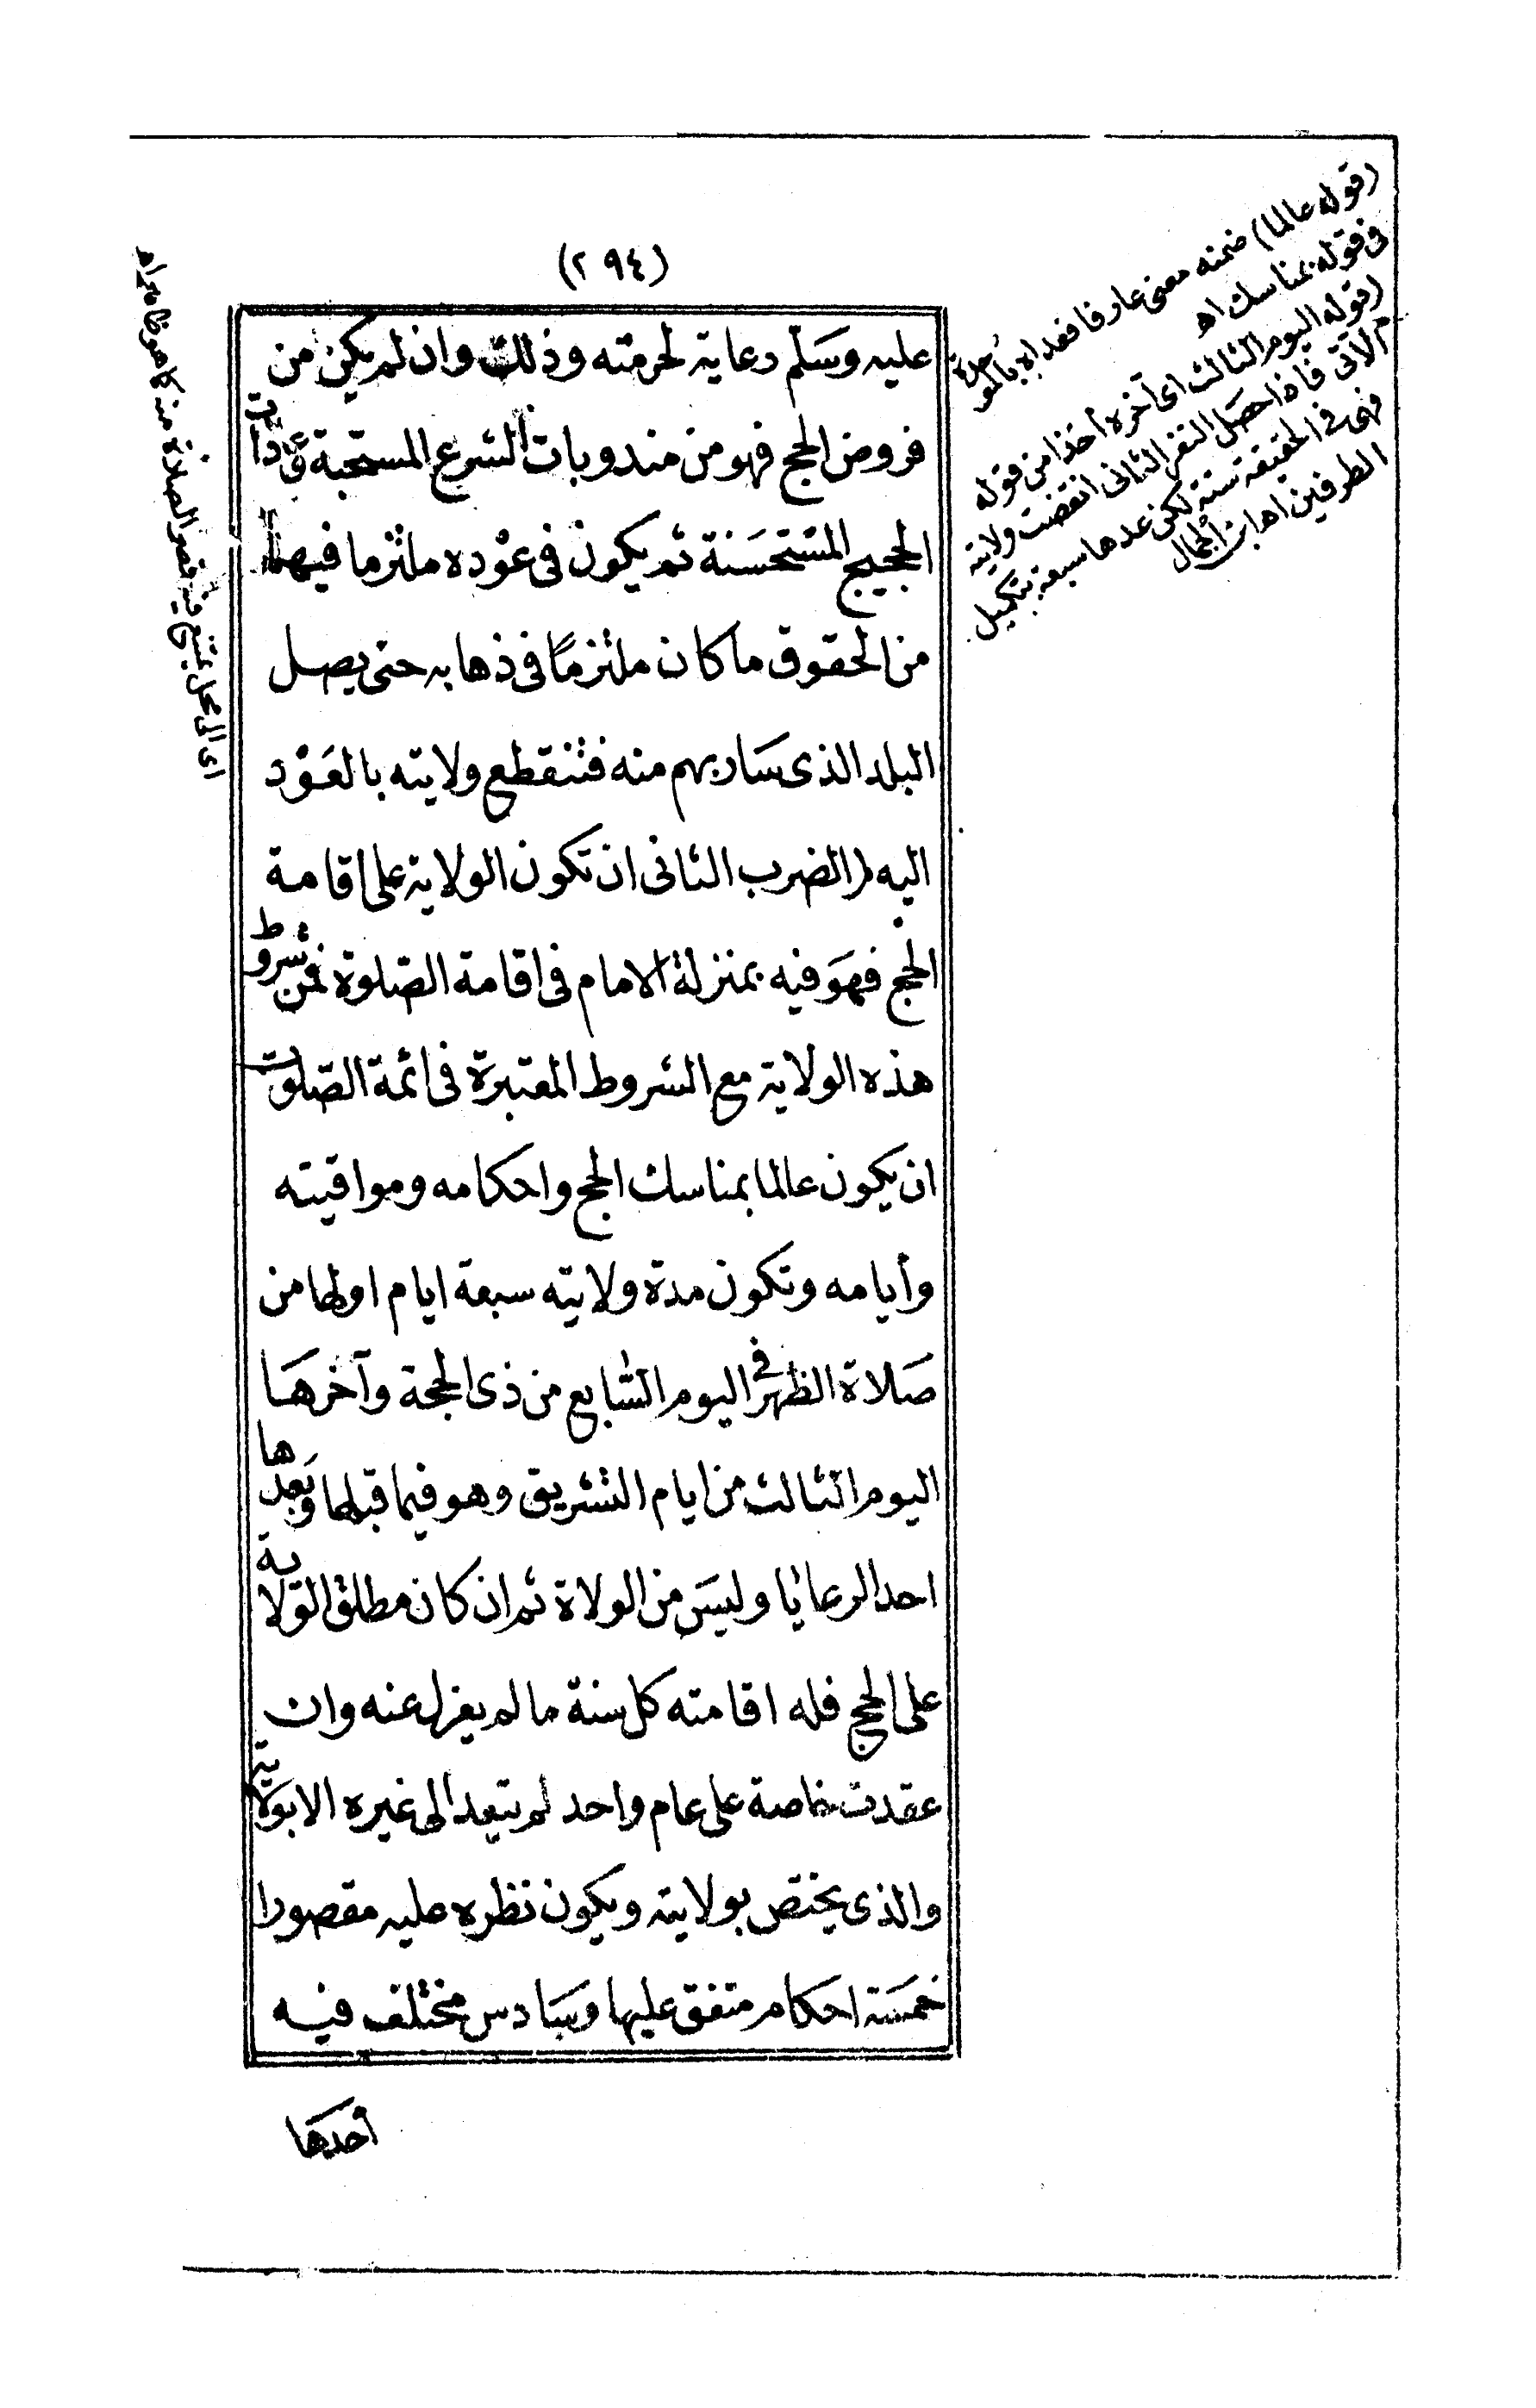 (٢٩٤)
عليه وسلم رعاية لحرمته وذلك وان لم يكن من
فروض الحج فهو من مندوبات الشرع المستحبة وعادات
الحجيج المستحسنة ثم يكون فى عوده ملتزما فيهم
من الحقوق ما كان ملتزمًا فى ذهابه حتى يصل
البلد الذى سار بهم منه فتنقطع ولايته بالعَوْد
اليه (الضرب الثانى ان تكون الولاية على اقامة
الحج فهوَ فيه بمنزلة الامام فى اقامة الصّلوة فمن شروط
هذه الولاية مع الشروط المعتبرة فى ائمة الصّلوات
ان يكون عالما بمناسك الحج واحكامه ومواقيته
وأيامه وتكون مدة ولايته سبعة ايام اولها من
صَلاة الظهر فى اليوم السّابع من ذى الحجة وآخرهَا
اليوم الثالث من ايام التشريق وهو فيما قبلها وبَعدها
احد الرعايا وليسَ من الولاة ثم ان كان مطلق الولاية
على الحج فله اقامته كل سنة ما لم يعزل عنه وان
عقدت خاصة على عام واحد لم يتعد الى غيره الا بولاية
والذى يختص بولايته ويكون نظره عليه مقصورا
خمسَة احكام متفق عليها وسَادس مختلف فيه
أحدها
(قوله عالما) ضمنه معنى عارفا فعداه بالموحدة
فى قوله بمناسك اه
(قوله اليوم الثالث اى آخره أخذا من قوله
الآتى فاذا حصل النفر الثانى انقضت ولايته
فهى فى الحقيقة ستة لكن عدها سبعة بتكميل
الطرفين اه ابن الجمال
اى الى محل يمتنع فيه قصر الصلاة منه كما هو ظاهر اه